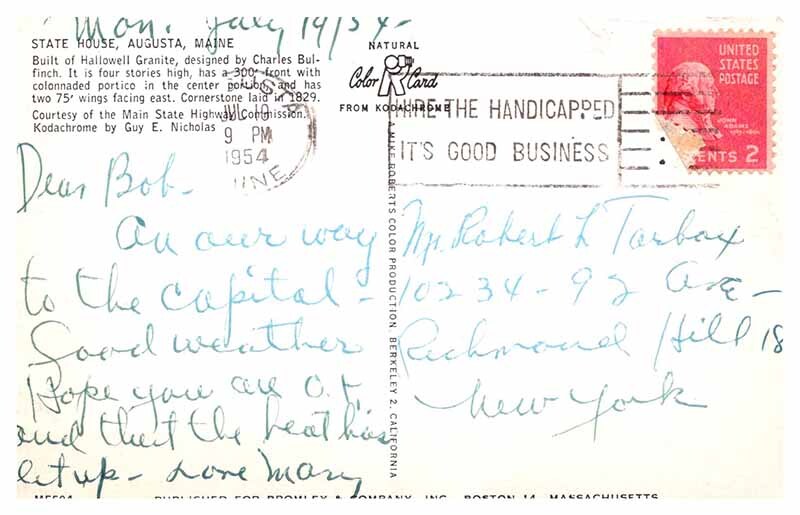 Mon. July 19/54-
STATE HOUSE, AUGUSTA, MAINE
Built of Hallowell Granite, designed by Charles Bul-
finch. It is four stories high, has a 300' front with
colonnaded portico in the center portion, and has
two 75' wings facing east. Cornerstone laid in 1829.
Courtesy of the Main State Highway Commission.
Kodachrome by Guy E. Nicholas
NATURAL
Color Card
FROM KODACHROME
9 PM
1954
HIRE THE HANDICAPPED
IT'S GOOD BUSINESS
UNITED
STATES
POSTAGE
JOHN
ADAMS
CENTS 2
A MIKE ROBERTS COLOR PRODUCTION, BERKELEY 2, CALIFORNIA
Dear Bob-
An our way
to the capital -
Good weather
Hope you are O.K.
and that the heat has
let up - Love Mary
Mr. Robert L Tarbox
10234-92 Ave-
Richmond Hill 18
New York
PUBLISHED FOR BROMLEY & COMPANY, INC., BOSTON 14, MASSACHUSETTS